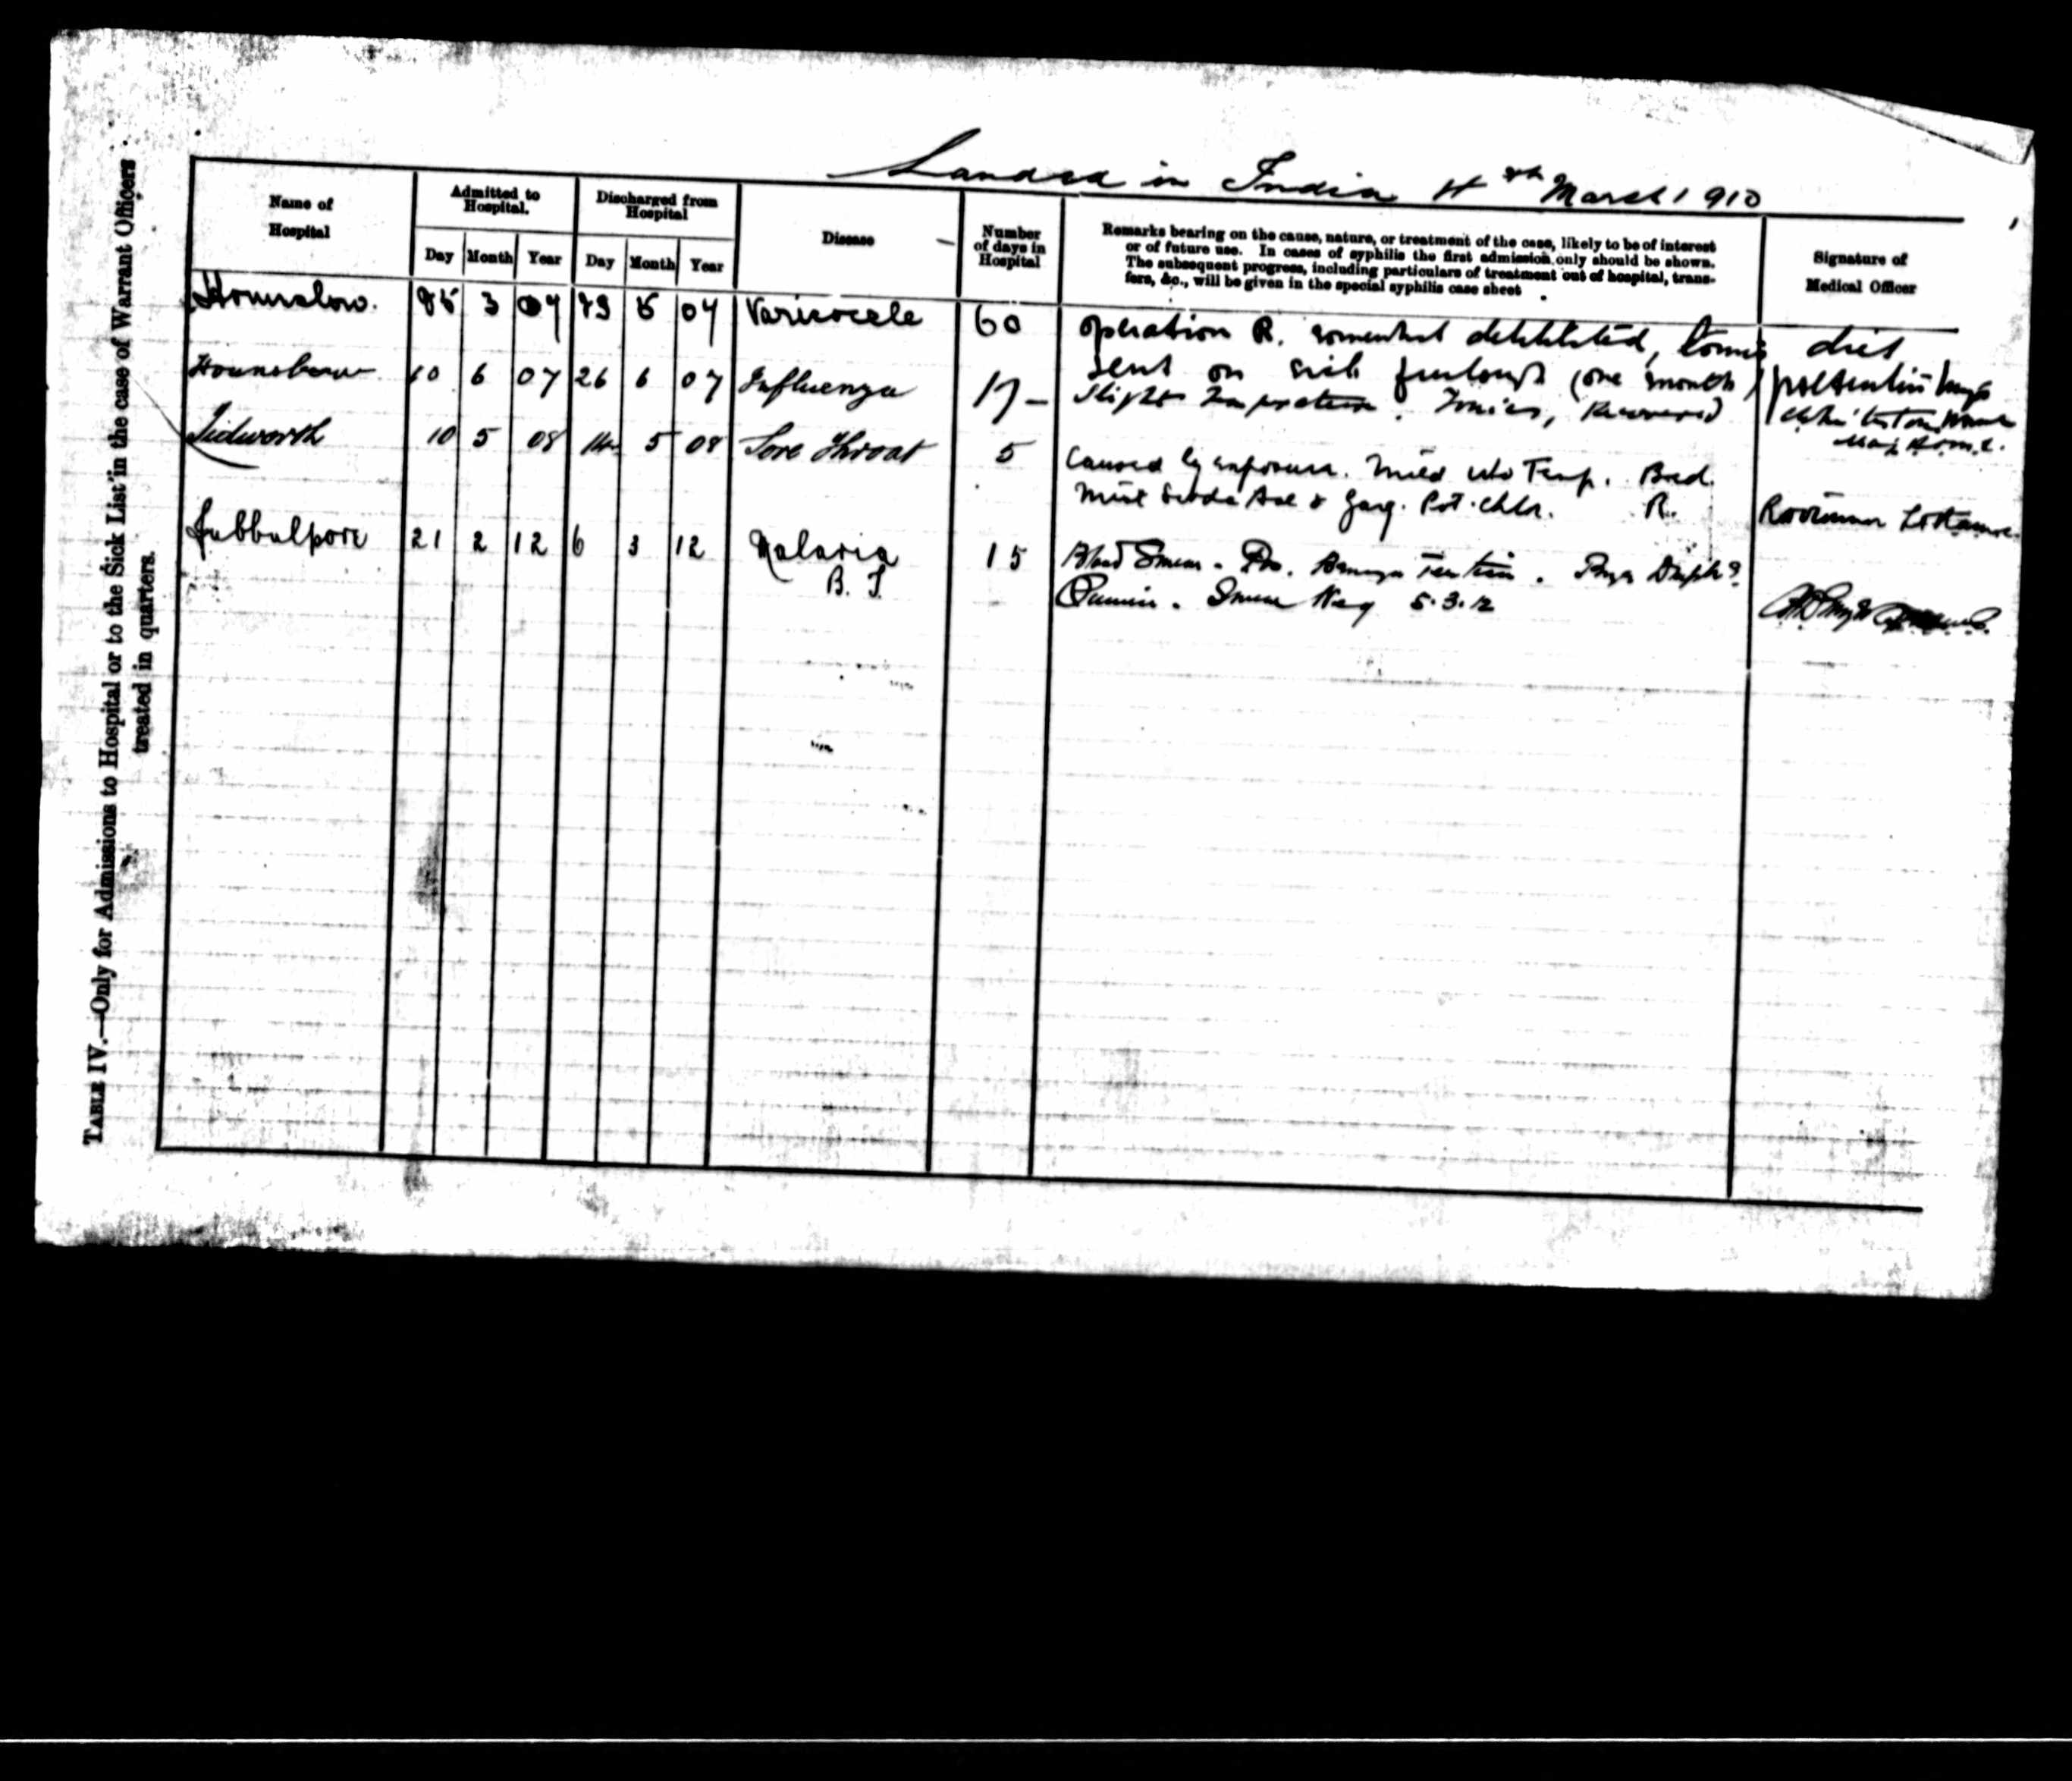 Landed in India 4th March 1910
TABLE IV.—Only for Admissions to Hospital or to the Sick List in the case of Warrant Officers
treated in quarters.
Name of Hospital
Admitted to Hospital.
Discharged from Hospital
Disease
Number of days in Hospital
Remarks bearing on the cause, nature, or treatment of the case, likely to be of interest
or of future use. In cases of syphilis the first admission only should be shown.
The subsequent progress, including particulars of treatment out of hospital, trans-
fers, &c., will be given in the special syphilis case sheet
Signature of Medical Officer
Day Month Year Day Month Year
Hounslow. 3 07 5 07 Varicocele 60 operation R. somewhat debilitated, tonic diet
sent on sick furlough (one month)
Hounslow 10 6 07 26 6 07 Influenza 17 Slight. Tonics, Recovered
Tidworth 10 5 08 14 5 08 Sore Throat 5 Caused by exposure. Mild no Temp. Bred.
Mist Soda & Garg. Pot. Chlor. R.
Jubbulpore 21 2 12 6 3 12 Malaria 15 Blood Smear
B. T. Quinine. Smear Neg 5.3.12